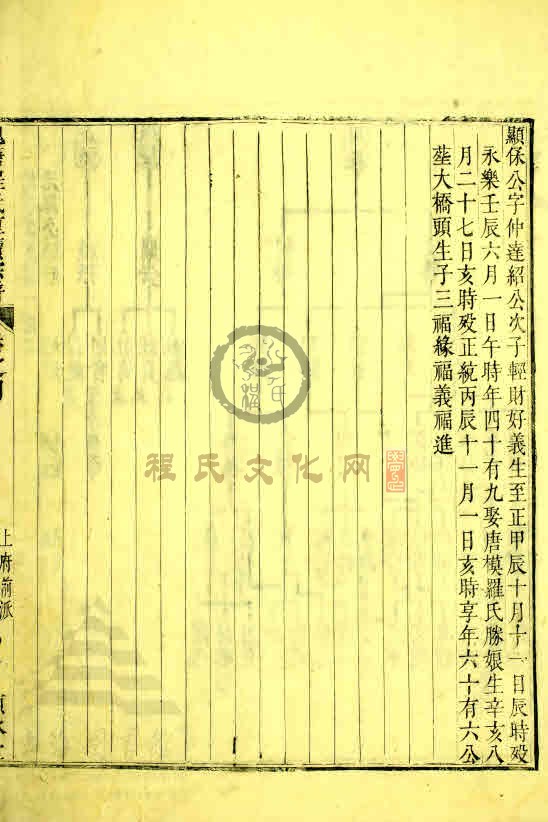 顯保公字仲達紹公次子輕財好義生至正甲辰十月十一日辰時殁
永樂壬辰六月一日午時年四十有九娶唐模羅氏勝娘生辛亥八
月二十七日亥時殁正統丙辰十一月一日亥時享年六十有六公
塟大橋頭生子三福緣福義福進
上府前派
程氏文化网